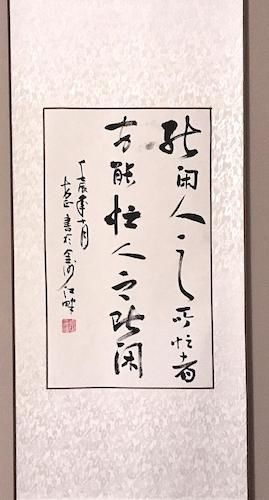 能闲人之所忙者
方能忙人之所闲
壬辰年十月
書於金沙江畔